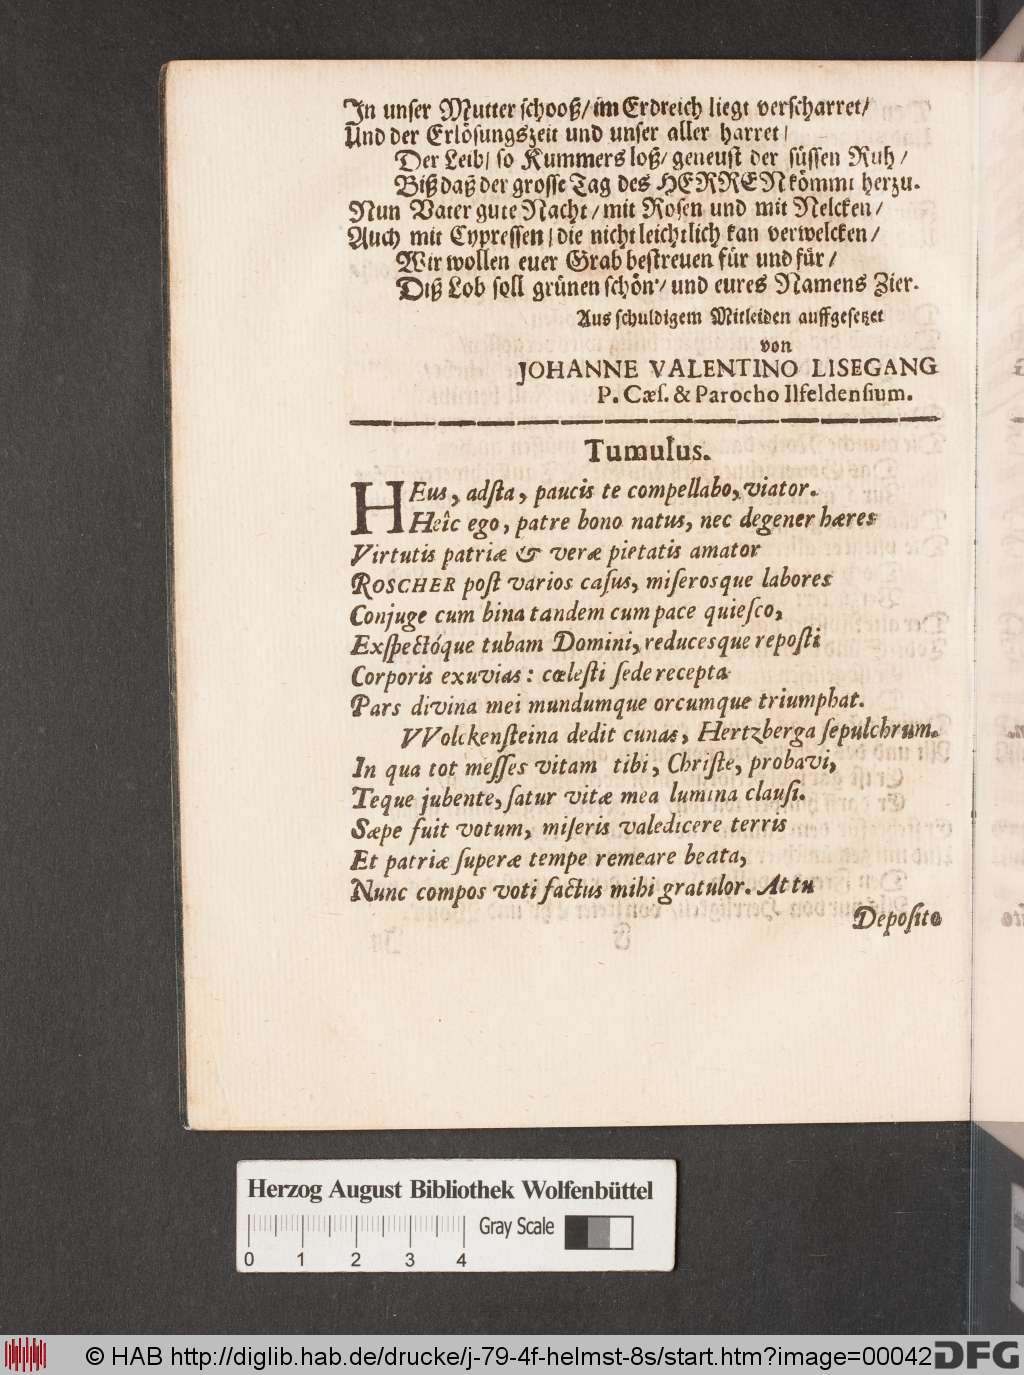 In unser Mutter schooß/ im Erdreich liegt verscharret/
Und der Erlösungszeit und unser aller harret/
Der Leib/ so Kummers loß/ geneust der süssen Ruh/
Biß daß der grosse Tag des HERREN kömmt herzu.
Nun Vater gute Nacht/ mit Rosen und mit Nelcken/
Auch mit Cypressen/ die nicht leichtlich kan verwelcken/
Wir wollen euer Grab bestreuen für und für/
Diß Lob soll grünen schön/ und eures Namens Zier.
Aus schuldigem Mitleiden auffgesetzet
von
JOHANNE VALENTINO LISEGANG
P. Cæſ. & Parocho Ilfeldenſium.
Tumulus.
HEus, adſta, paucis te compellabo, viator.
Heîc ego, patre bono natus, nec degener hæres
Virtutis patriæ & veræ pietatis amator
ROSCHER poſt varios caſus, miſerosque labores
Conjuge cum bina tandem cum pace quieſco,
Exſpectóque tubam Domini, reducesque repoſti
Corporis exuvias: cœleſti ſede recepta
Pars divina mei mundumque orcumque triumphat.
VVolckenſteina dedit cunas, Hertzberga ſepulchrum.
In qua tot meſſes vitam tibi, Chriſte, probavi,
Teque jubente, ſatur vitæ mea lumina clauſi.
Sæpe fuit votum, miſeris valedicere terris
Et patriæ ſuperæ tempe remeare beata,
Nunc compos voti factus mihi gratulor. At tu
Depoſito
Herzog August Bibliothek Wolfenbüttel
Gray Scale
0 1 2 3 4
© HAB http://diglib.hab.de/drucke/j-79-4f-helmst-8s/start.htm?image=00042
DFG